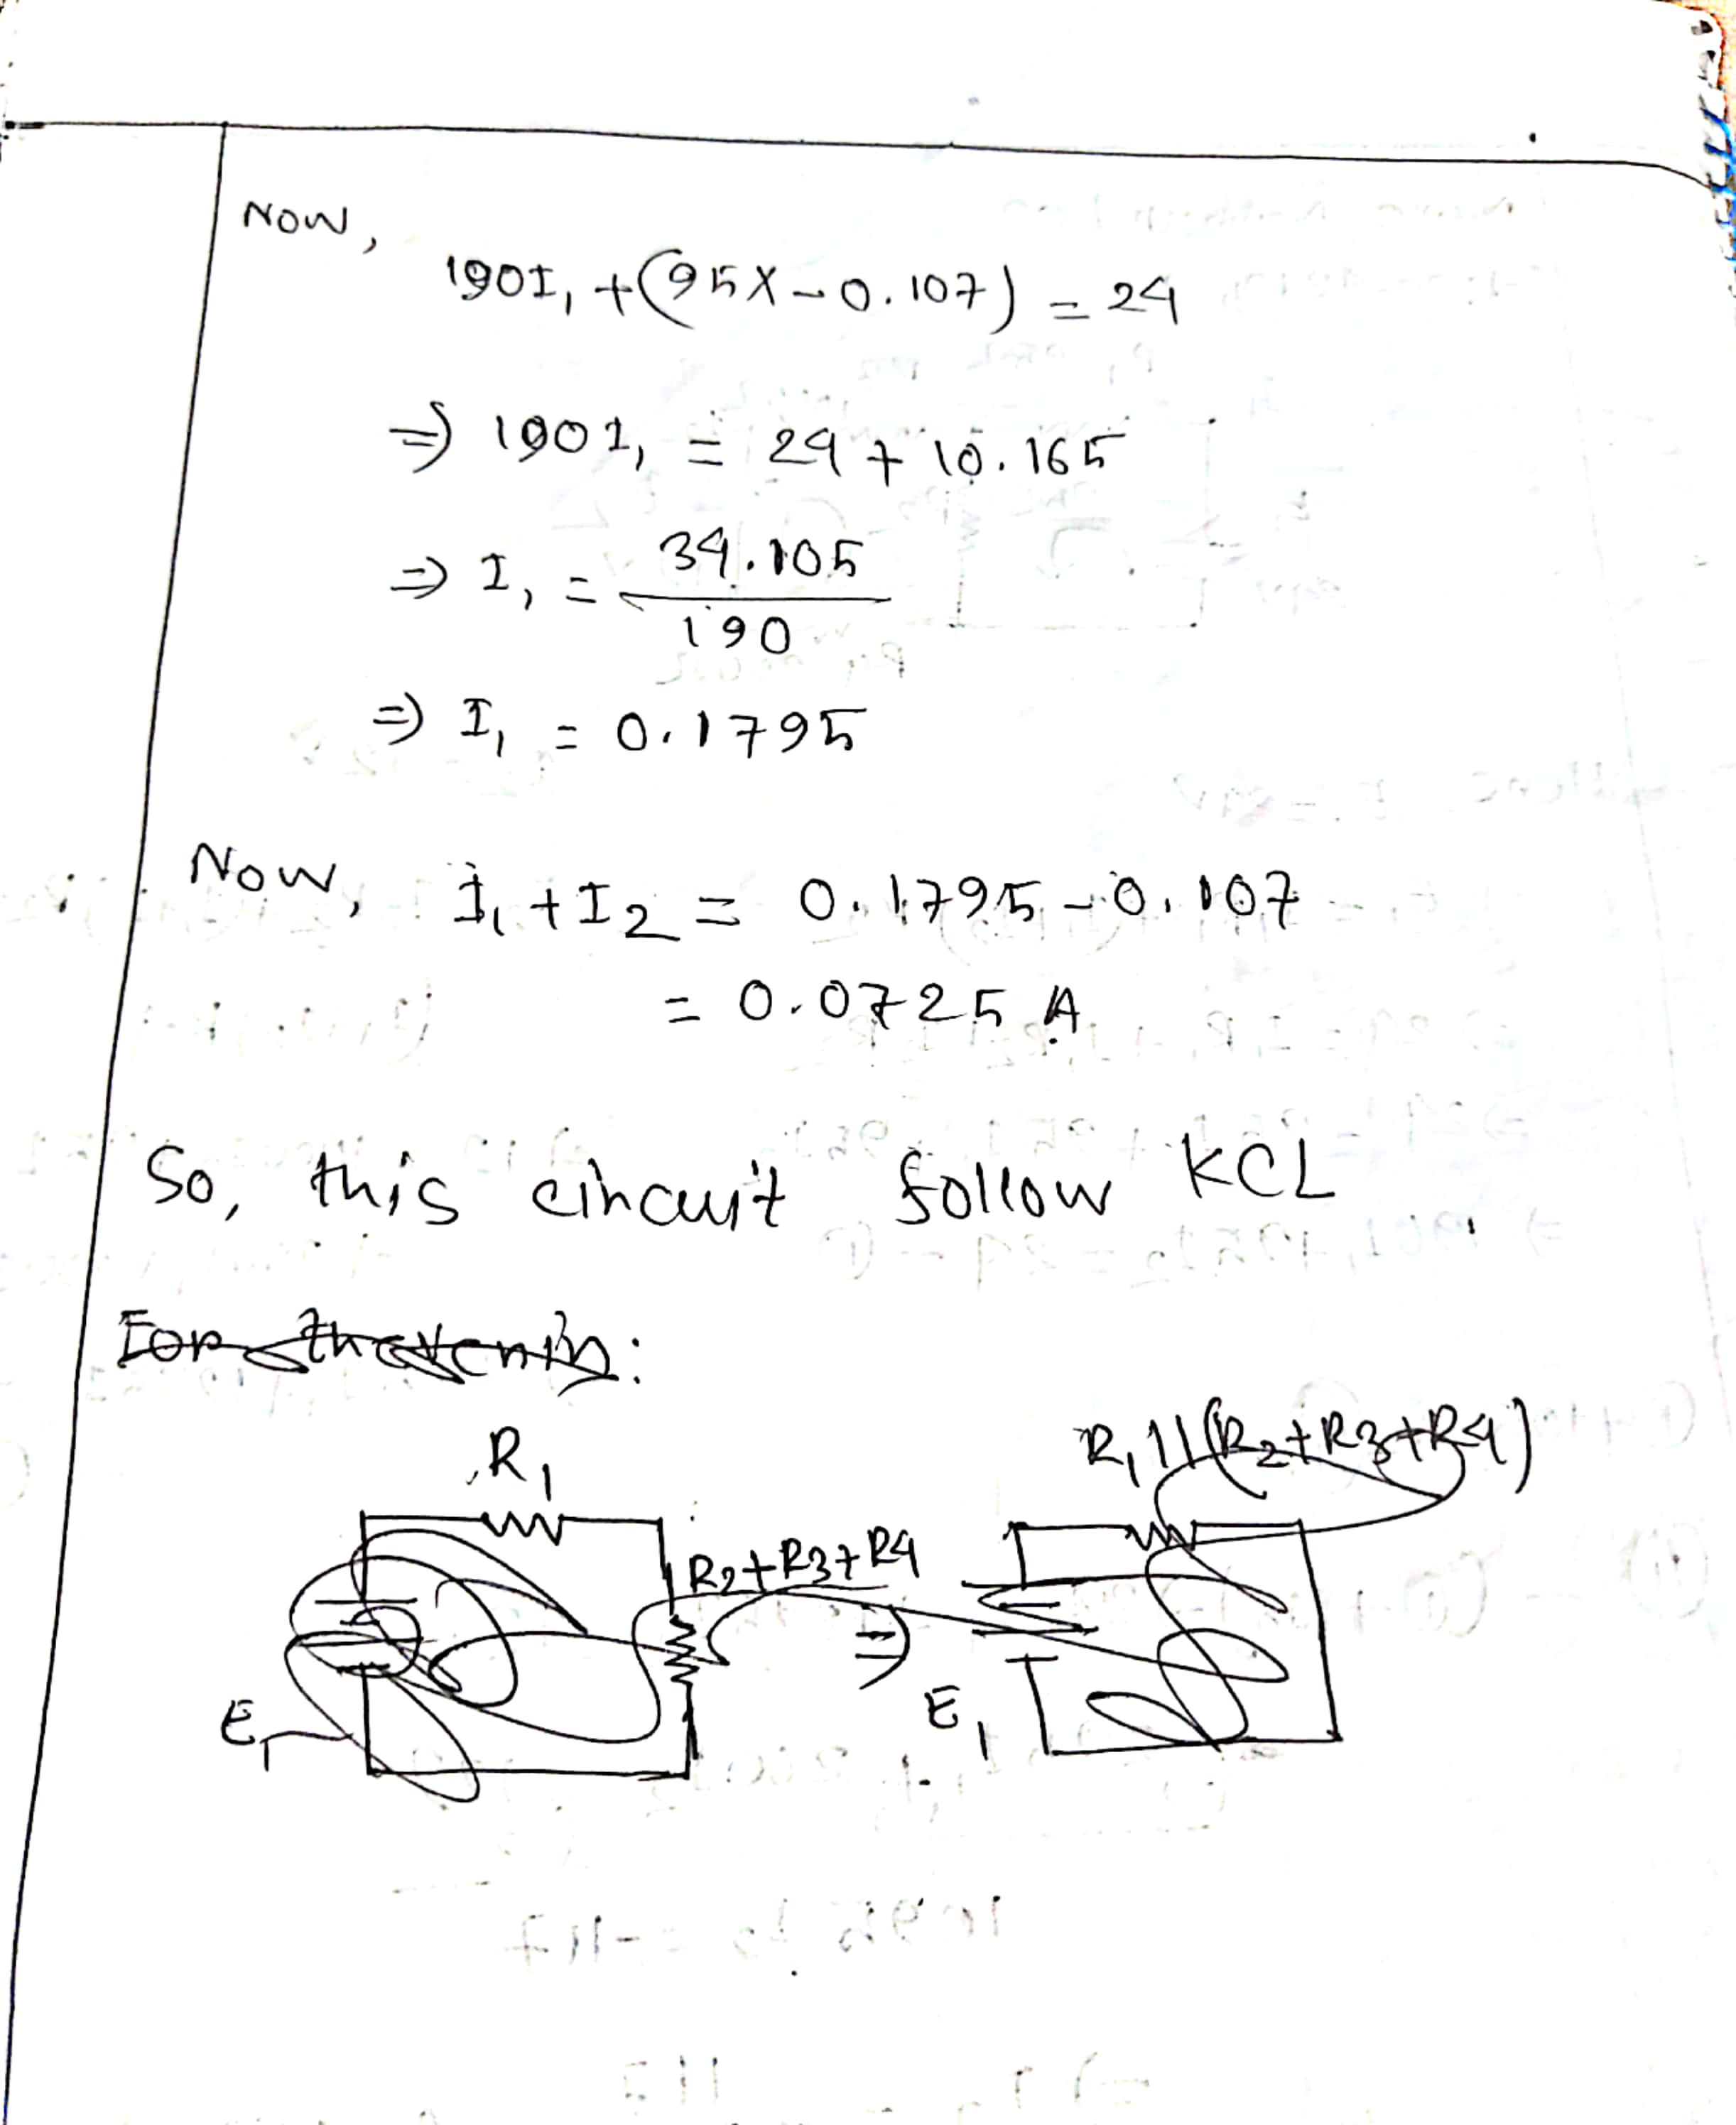 Now,
190I₁ + (95X-0.107) = 24
⇒ 190I₁ = 24 + 10.165
⇒ I₁ = 34.105
190
⇒ I₁ = 0.1795
Now, I₁ + I₂ = 0.1795 - 0.107
= 0.0725 A
So, this circuit follow KCL.
For thevenin:
R₁
R₁||(R₂+R₃+R₄)
R₂+R₃+R₄
⇒
E₁
E₁